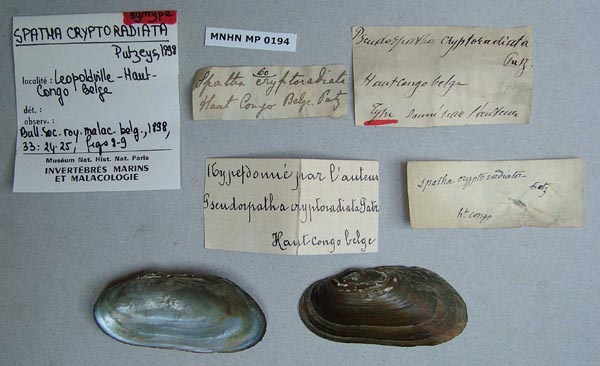 syntype
SPATHA CRYPTORADIATA
Putzeys, 1898
localité : Leopoldville - Haut-
Congo Belge
dét. :
observ. :
Bull. Soc. roy. malac. belg., 1898,
33: 24-25, figs 8-9
Muséum Nat. Hist. Nat. Paris
INVERTÉBRÉS MARINS
ET MALACOLOGIE
MNHN MP 0194
Spatha cryptoradiata
Haut Congo Belge Putz
Pseudospatha cryptoradiata
Putz.
Haut Congo belge
Type donné par l'auteur
1 Type donné par l'auteur
Pseudospatha cryptoradiata Putz
Haut Congo belge
Spatha cryptoradiata
Putz
Ht Congo